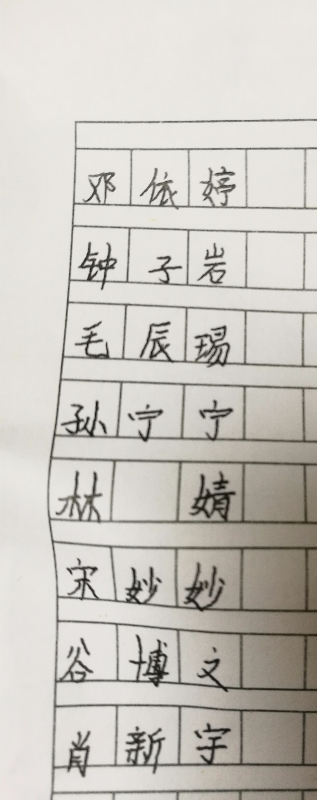 邓依婷
钟子岩
毛辰琩
孙宁宁
林 婧
宋妙妙
谷博文
肖新宇